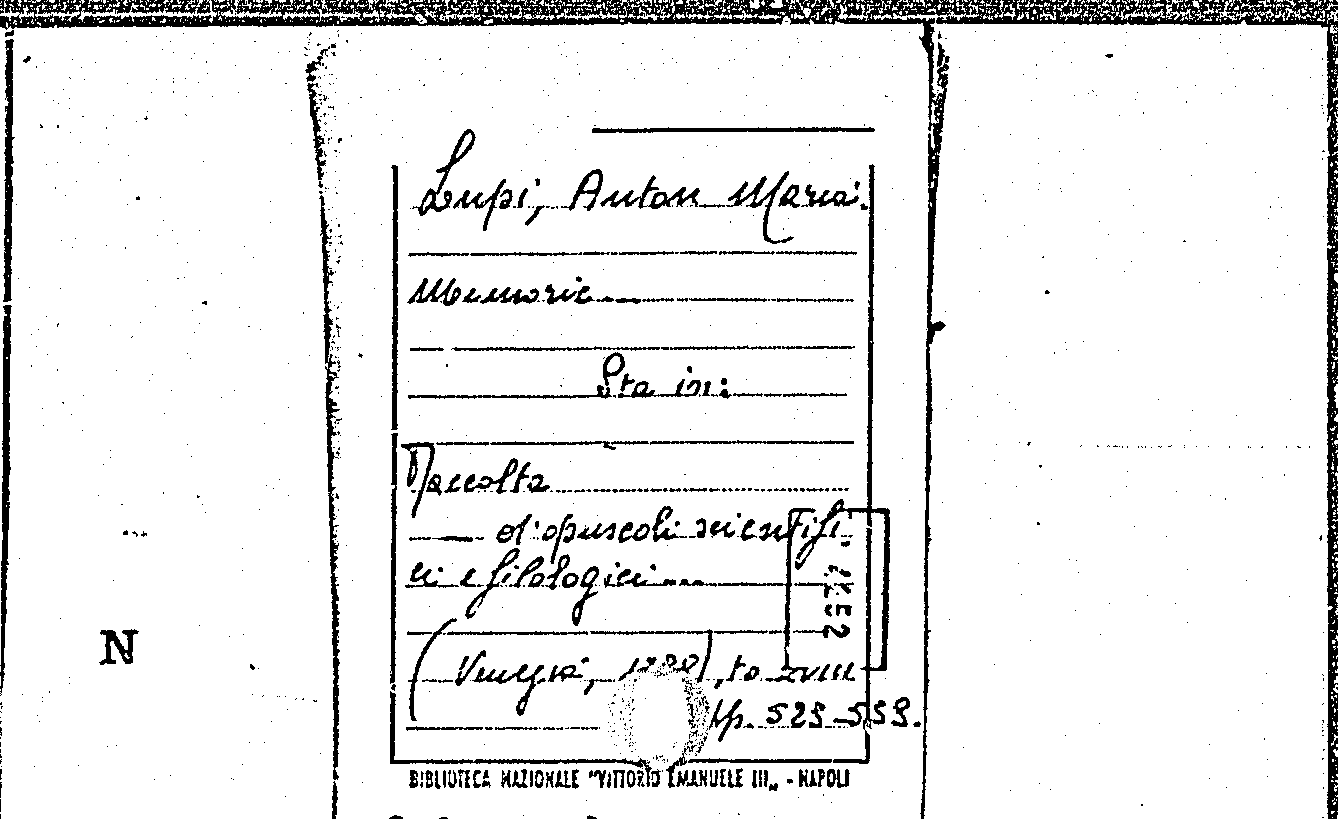 Lupi, Anton Maria.
Memorie...
Sta in:
Raccolta
— d'opuscoli scientifi-
ci e filologici...
(Venezia, ), to XVIII
pp. 525-559.
N
BIBLIOTECA NAZIONALE "VITTORIO EMANUELE III„ - NAPOLI